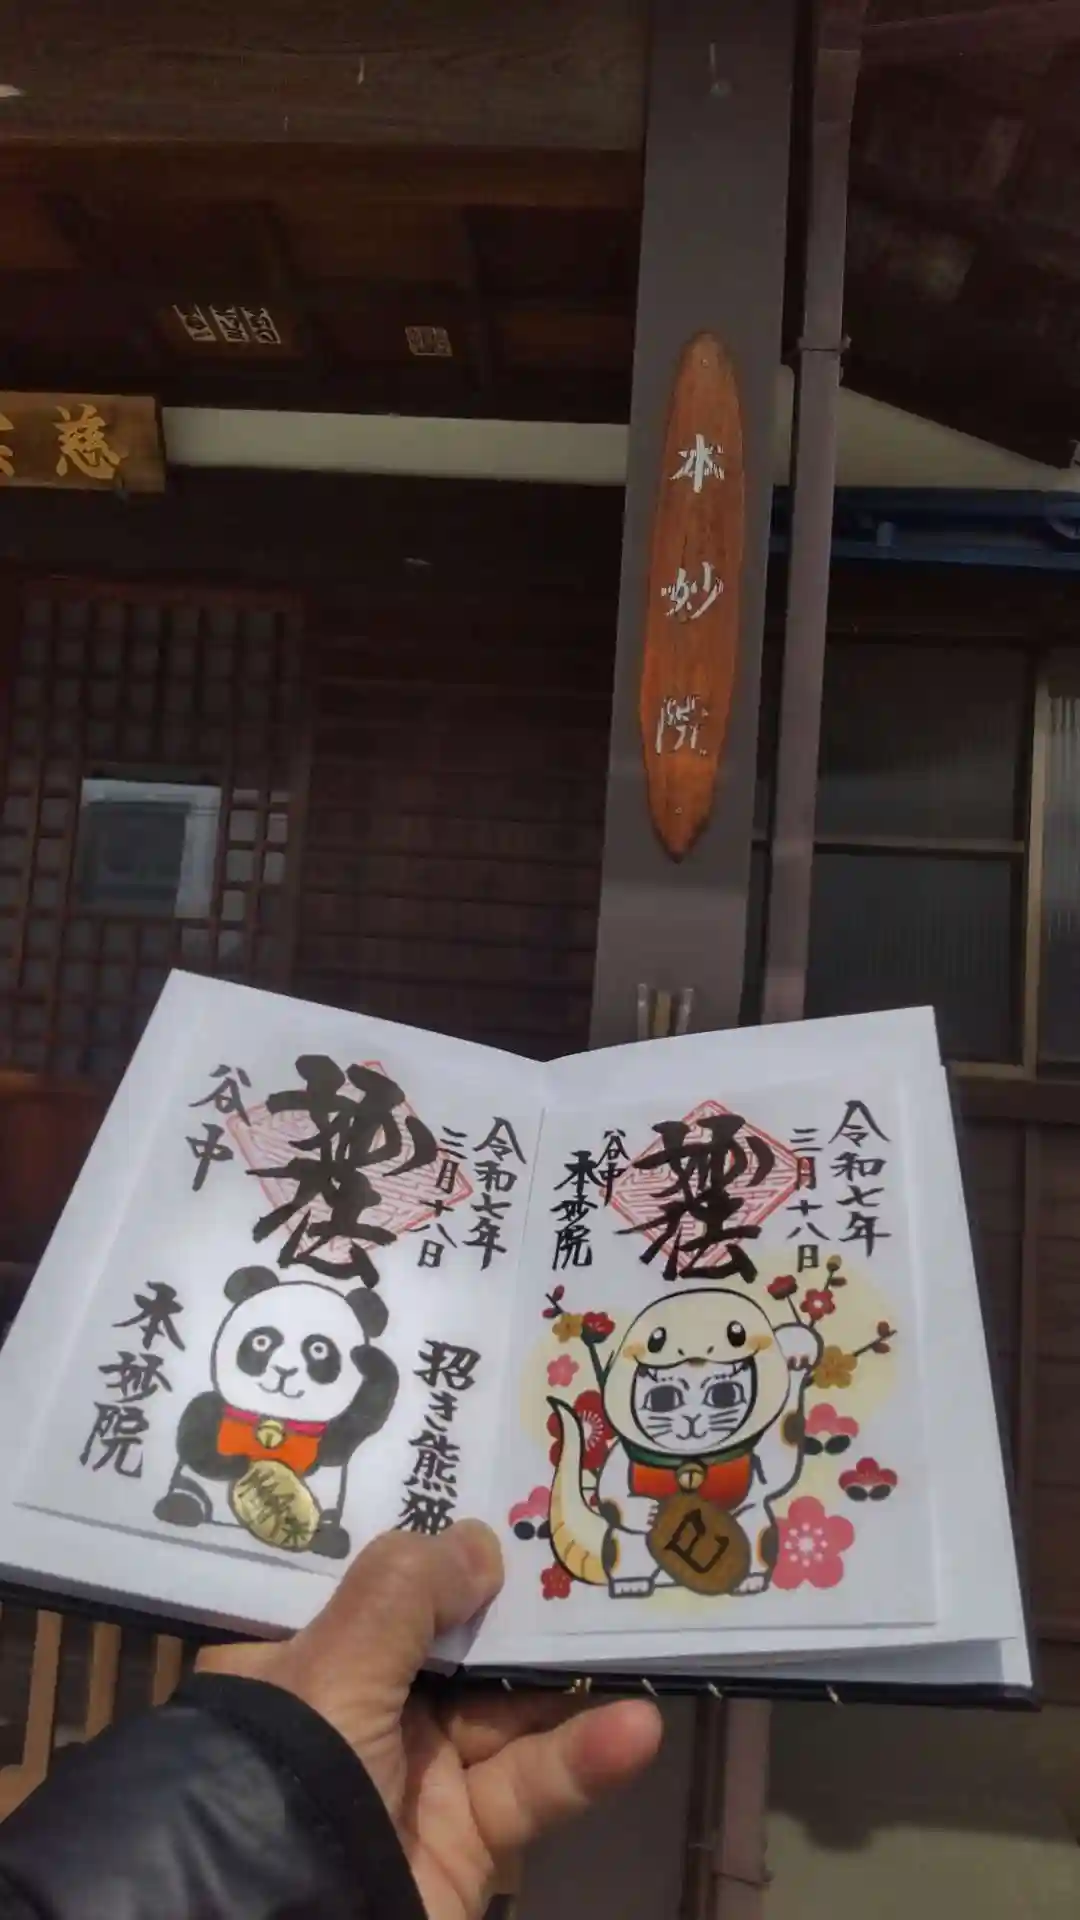 慈
本妙院
令和七年
三月十八日
妙法
谷中
本妙院
招き熊猫
令和七年
三月十八日
妙法
谷中
本妙院
巳